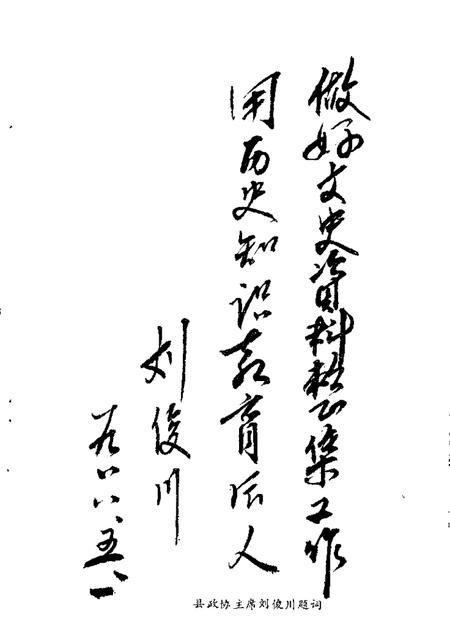 做好文史資料整集工作
用历史知识教育后人
刘俊川
一九八八、五、一
县政协主席刘俊川题词